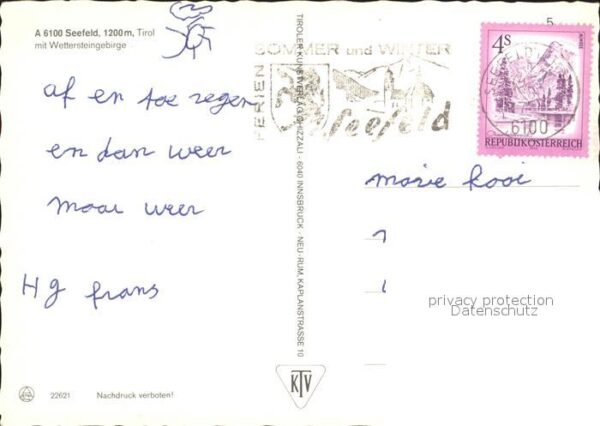 A 6100 Seefeld, 1200m, Tirol
mit Wettersteingebirge
af en toe regen
en dan weer
mooi weer
Hg frans
22621 Nachdruck verboten!
TIROLER KUNSTVERLAG CHIZZALI - 6040 INNSBRUCK - NEU-RUM, KAPLANSTRASSE 10
KTV
FERIEN
SOMMER und WINTER
Seefeld
6100
5
4S
REPUBLIK ÖSTERREICH
Marie Kooi
privacy protection
Datenschutz